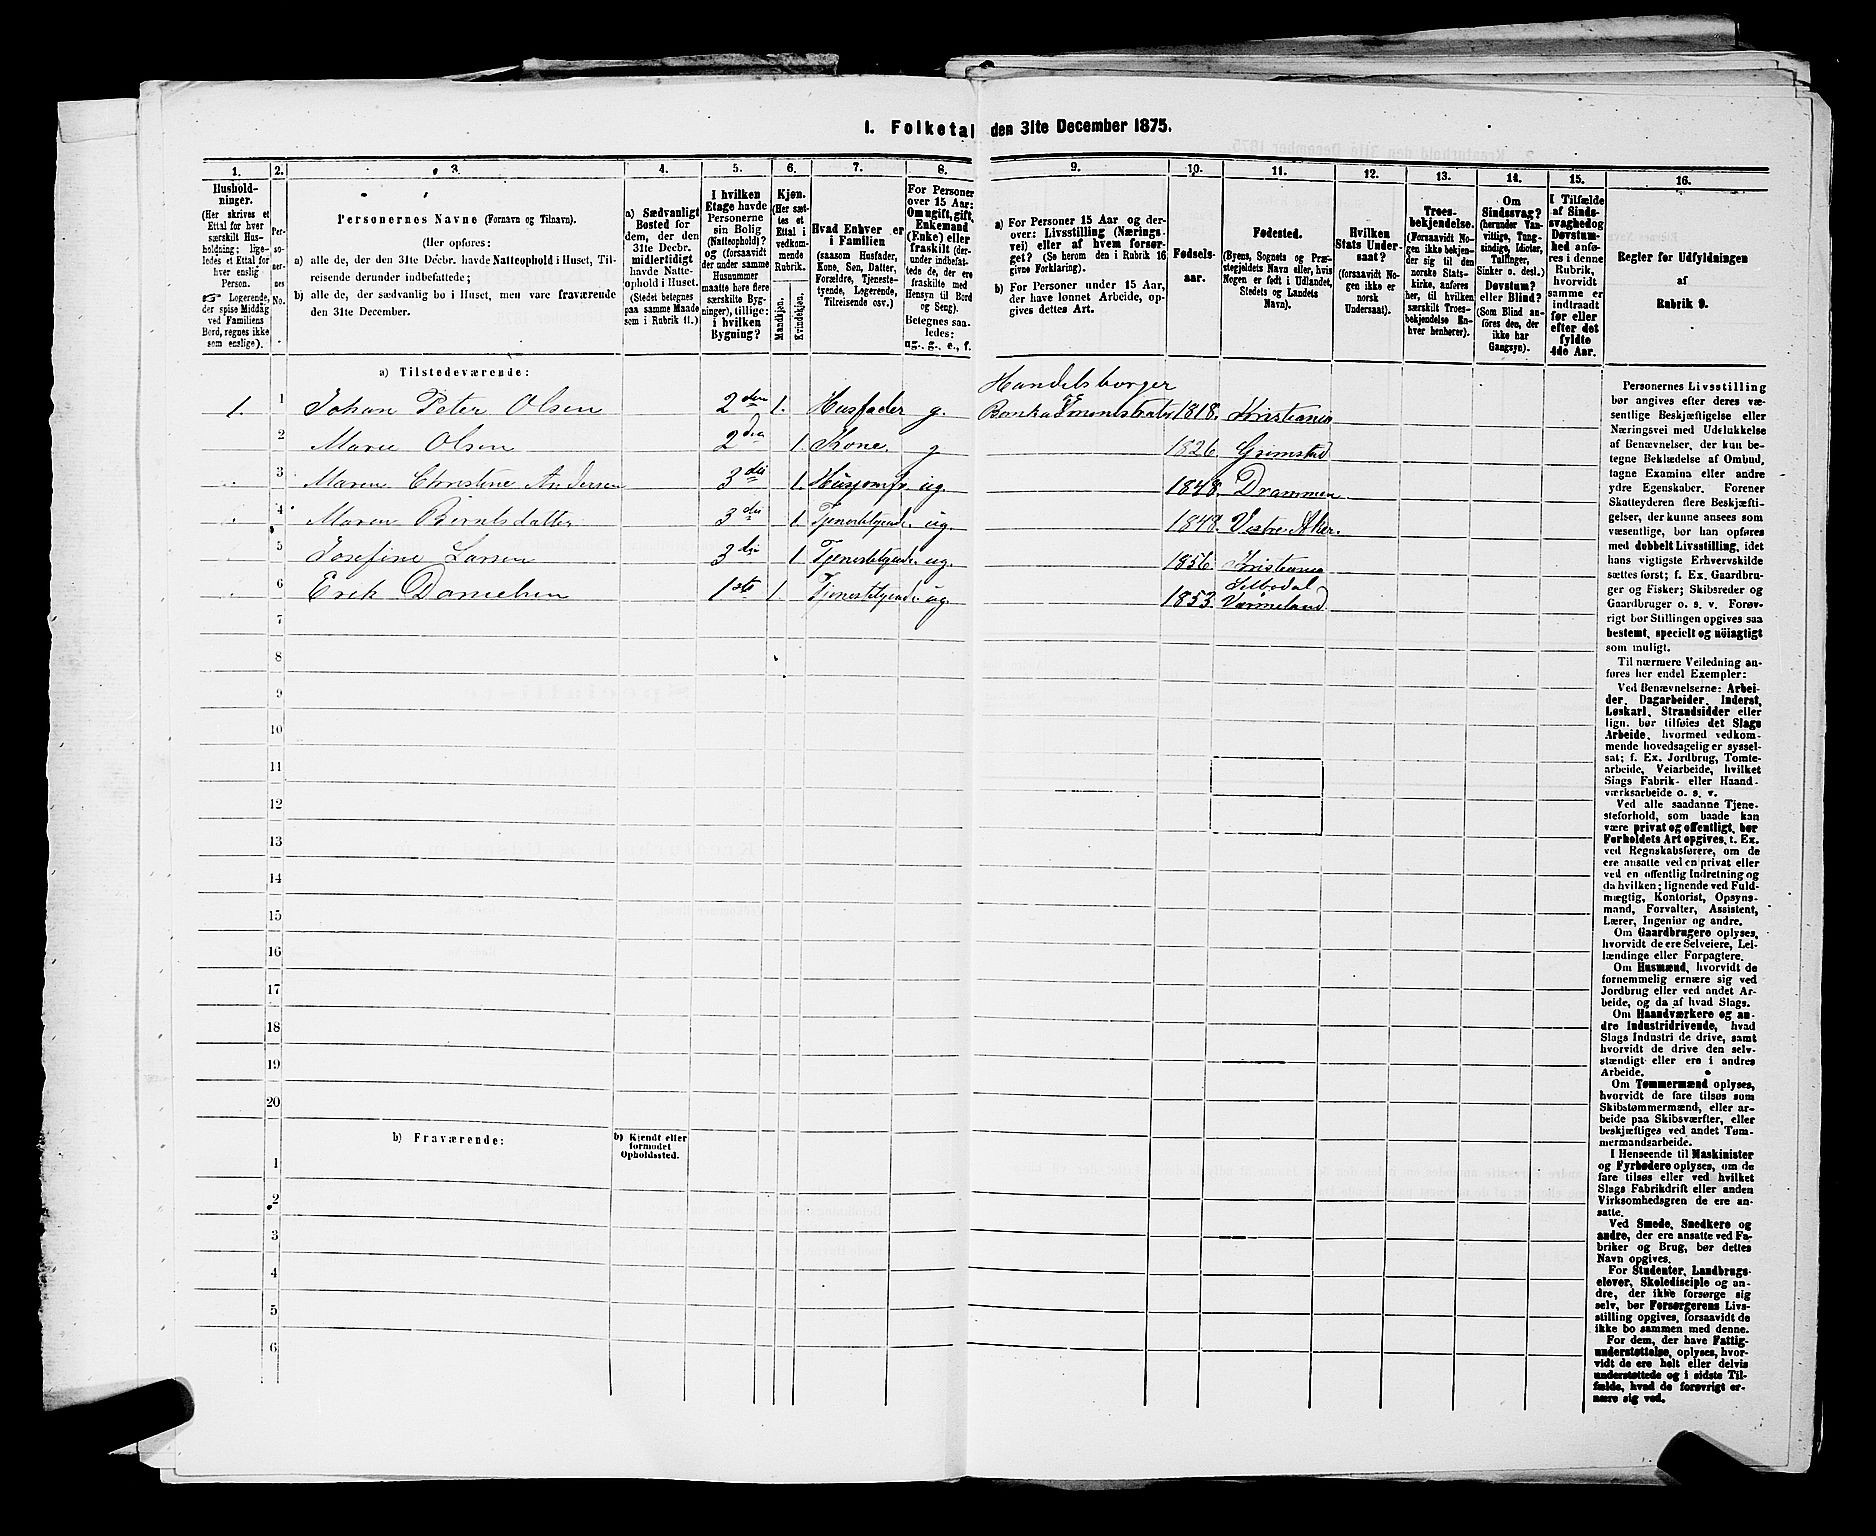 I. Folketal den 31te December 1875.
1. 2. 3. 4. 5. 6. 7. 8. 9. 10. 11. 12. 13. 14. 15. 16.
Husholdninger.
(Her skrives et
Ettal for hver
særskilt Husholdning;
ligeledes et Ettal for
hver enslig
Person.
Logerende,
der spise Middag
ved Familiens
Bord, regnes ikke
som enslige).
Personernes No.
Personernes Navne (Fornavn og Tilnavn).
(Her opføres:
a) alle de, der den 31te Decbr. havde Natteophold i Huset, Tilreisende derunder indbefattede;
b) alle de, der sædvanlig bo i Huset, men vare fraværende
den 31te December.
a) Sædvanligt
Bosted for
dem, der den
31te Decbr.
midlertidigt
havde Natteophold i Huset.
(Stedet betegnes
paa samme Maade
som i Rubrik 11.)
I hvilken
Etage havde
Personerne
sin Bolig
(Natteophold)?
og (forsaavidt
der under samme
Husnummer
maatte høre flere
særskilte Bygninger), tillige:
i hvilken
Bygning?
Kjøn.
(Her sættes et
Ettal i
vedkommende
Rubrik.
Mandkjøn.
Kvindekjøn.
Hvad Enhver er
i Familien
(saasom Husfader,
Kone, Søn, Datter,
Forældre, Tjenestetyende, Logerende,
Tilreisende osv.)
For Personer
over 15 Aar:
Om ugift, gift,
Enkemand
(Enke) eller
fraskilt (derunder indbefattede de, der ere
fraskilte med
Hensyn til Bord
og Seng).
Betegnes saaledes:
ug., g., e., f.
a) For Personer 15 Aar og derover: Livsstilling (Næringsvei) eller af hvem forsørget? (Se herom den i Rubrik 16
givne Forklaring).
b) For Personer under 15 Aar,
der have lønnet Arbeide, opgives dettes Art.
Fødselsaar.
Fødested.
(Byens, Sognets og Præstegjeldets Navn eller, hvis
Nogen er født i Udlandet,
Stedets og Landets
Navn).
Hvilken
Stats Undersaat?
(forsaavidt Nogen ikke er
norsk
Undersaat).
Troesbekjendelse.
(Forsaavidt Nogen ikke bekjender sig til den
norske Statskirke, anføres
her, til hvilken
særskilt Troesbekjendelse Enhver henhører).
Om
Sindssvag?
(herunder Vanvittige, Tungsindige, Idioter,
Tullinger,
Sinker o. desl.)
Døvstum?
eller Blind?
(Som Blind anføres den, der
ikke har
Gangsyn).
I Tilfælde
af Sindssvaghed og
Døvstumhed anføres i denne
Rubrik,
hvorvidt
samme er
indtraadt
før eller
efter det
fyldte
4de Aar.
Regler for Udfyldningen
af
Rubrik 9.
a) Tilstedeværende:
Handelsborger
og
1. 1 Johan Peter Olsen 2den 1. Husfader g. Bankadministrator 1818. Kristiania
2 Marie Olsen 2den 1. Kone. g 1826. Grimstad
3 Maren Christine Andersen 3die 1. Husjomfr. ug. 1848. Drammen
4 Maren Berntsdatter 3die 1. Tjenestetyende. ug. 1848. Vestre Aker.
5 Josefine Larsen 3die 1. Tjenestetyende. ug. 1856. Kristiania
6 Erik Danielsen 1ste 1. Tjenestetyende. ug. 1853. Silbodal
Værmeland
7
8
9
10
11
12
13
14
15
16
17
18
19
20
b) Fraværende:
b) Kjendt eller
formodet
Opholdssted.
1
2
3
4
5
6
Personernes Livsstilling
bør angives efter deres væsentlige Beskjæftigelse eller
Næringsvei med Udelukkelse
af Benævnelser, der kun betegne Beklædelse af Ombud,
tagne Examina eller andre
ydre Egenskaber. Forener
Skatteyderen flere Beskjæftigelser, der kunne ansees som
væsentlige, bør han opføres
med dobbelt Livsstilling, idet
hans vigtigste Erhvervskilde
sættes først; f. Ex. Gaardbruger og Fisker; Skibsreder og
Gaardbruger o. s. v. Forøvrigt bør Stillingen opgives saa
bestemt, specielt og nöiagtigt
som muligt.
Til nærmere Veiledning anføres her endel Exempler:
Ved Benævnelserne: Arbeider, Dagarbeider, Inderst,
Løskarl, Strandsidder eller
lign. bør tilføies det Slags
Arbeide, hvormed vedkommende hovedsagelig er sysselsat; f. Ex. Jordbrug, Tomtearbeide, Veiarbeide, hvilket
Slags Fabrik- eller Haandværksarbeide o. s. v.
Ved alle saadanne Tjenesteforhold, som baade kan
være privat og offentligt, bør
Forholdets Art opgives, t. Ex.
ved Regnskabsførere, om de
ere ansatte ved en privat eller
ved en offentlig Indretning og
da hvilken; lignende ved Fuldmægtig, Kontorist, Opsynsmand, Forvalter, Assistent,
Lærer, Ingeniør og andre.
Om Gaardbrugere oplyses,
hvorvidt de ere Selveiere, Leilændinge eller Forpagtere.
Om Husmænd, hvorvidt de
fornemmelig ernære sig ved
Jordbrug eller ved andet Arbeide, og da af hvad Slags.
Om Haandværkere og andre Industridrivende, hvad
Slags Industri de drive, samt
hvorvidt de drive den selvstændigt eller ere i andres
Arbeide.
Om Tømmermænd oplyses,
hvorvidt de fare tilsøs som
Skibstømmermænd, eller arbeide paa Skibsværfter, eller
beskjæftiges ved andet Tømmermandsarbeide.
I Henseende til Maskinister
og Fyrbødere oplyses, om de
fare tilsøs eller ved hvilket
Slags Fabrikdrift eller anden
Virksomhedsgren de ere ansatte.
Ved Smede, Snedkere og
andre, der ere ansatte ved Fabriker og Brug, bør dettes
Navn opgives.
For Studenter, Landbrugselever, Skoledisciple og andre, der ikke forsørge sig
selv, bør Forsørgerens Livsstilling opgives, forsaavidt de
ikke bo sammen med denne.
For dem, der have Fattigunderstøttelse, oplyses, hvorvidt de ere helt eller delvis
understøttede og i sidste Tilfælde, hvad de forøvrigt ernære sig ved.